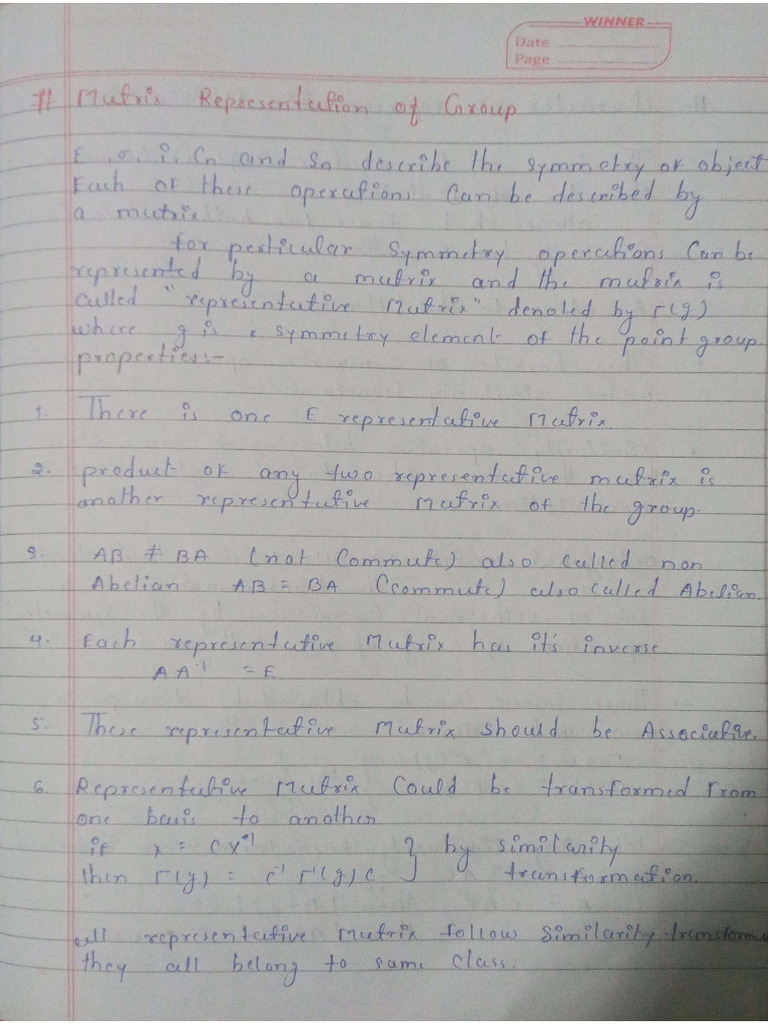 WINNER
Date
Page
# Matrix Representation of Group
E, σ, i, Cn and Sn describe the symmetry of object
Each of these operations can be described by
a matrix
for perticular symmetry operations can be
represented by a matrix and the matrix is
called "representative Matrix" denoted by Γ(g)
where g is a symmetry element of the point group.
properties:-
1. There is one E representative Matrix.
2. product of any two representative matrix is
another representative Matrix of the group.
3. AB ≠ BA (not Commute) also called non
Abelian AB = BA (commute) also called Abelian.
4. Each representative Matrix has it's inverse
A A⁻¹ = E
5. These representative Matrix should be Associative.
6. Representative Matrix Could be transformed from
one basis to another
if x = c x'⁻¹ } by similarity
then Γ(g) = c⁻¹ Γ'(g) c } transformation.
all representative Matrix follow similarity transform
they all belong to same class.